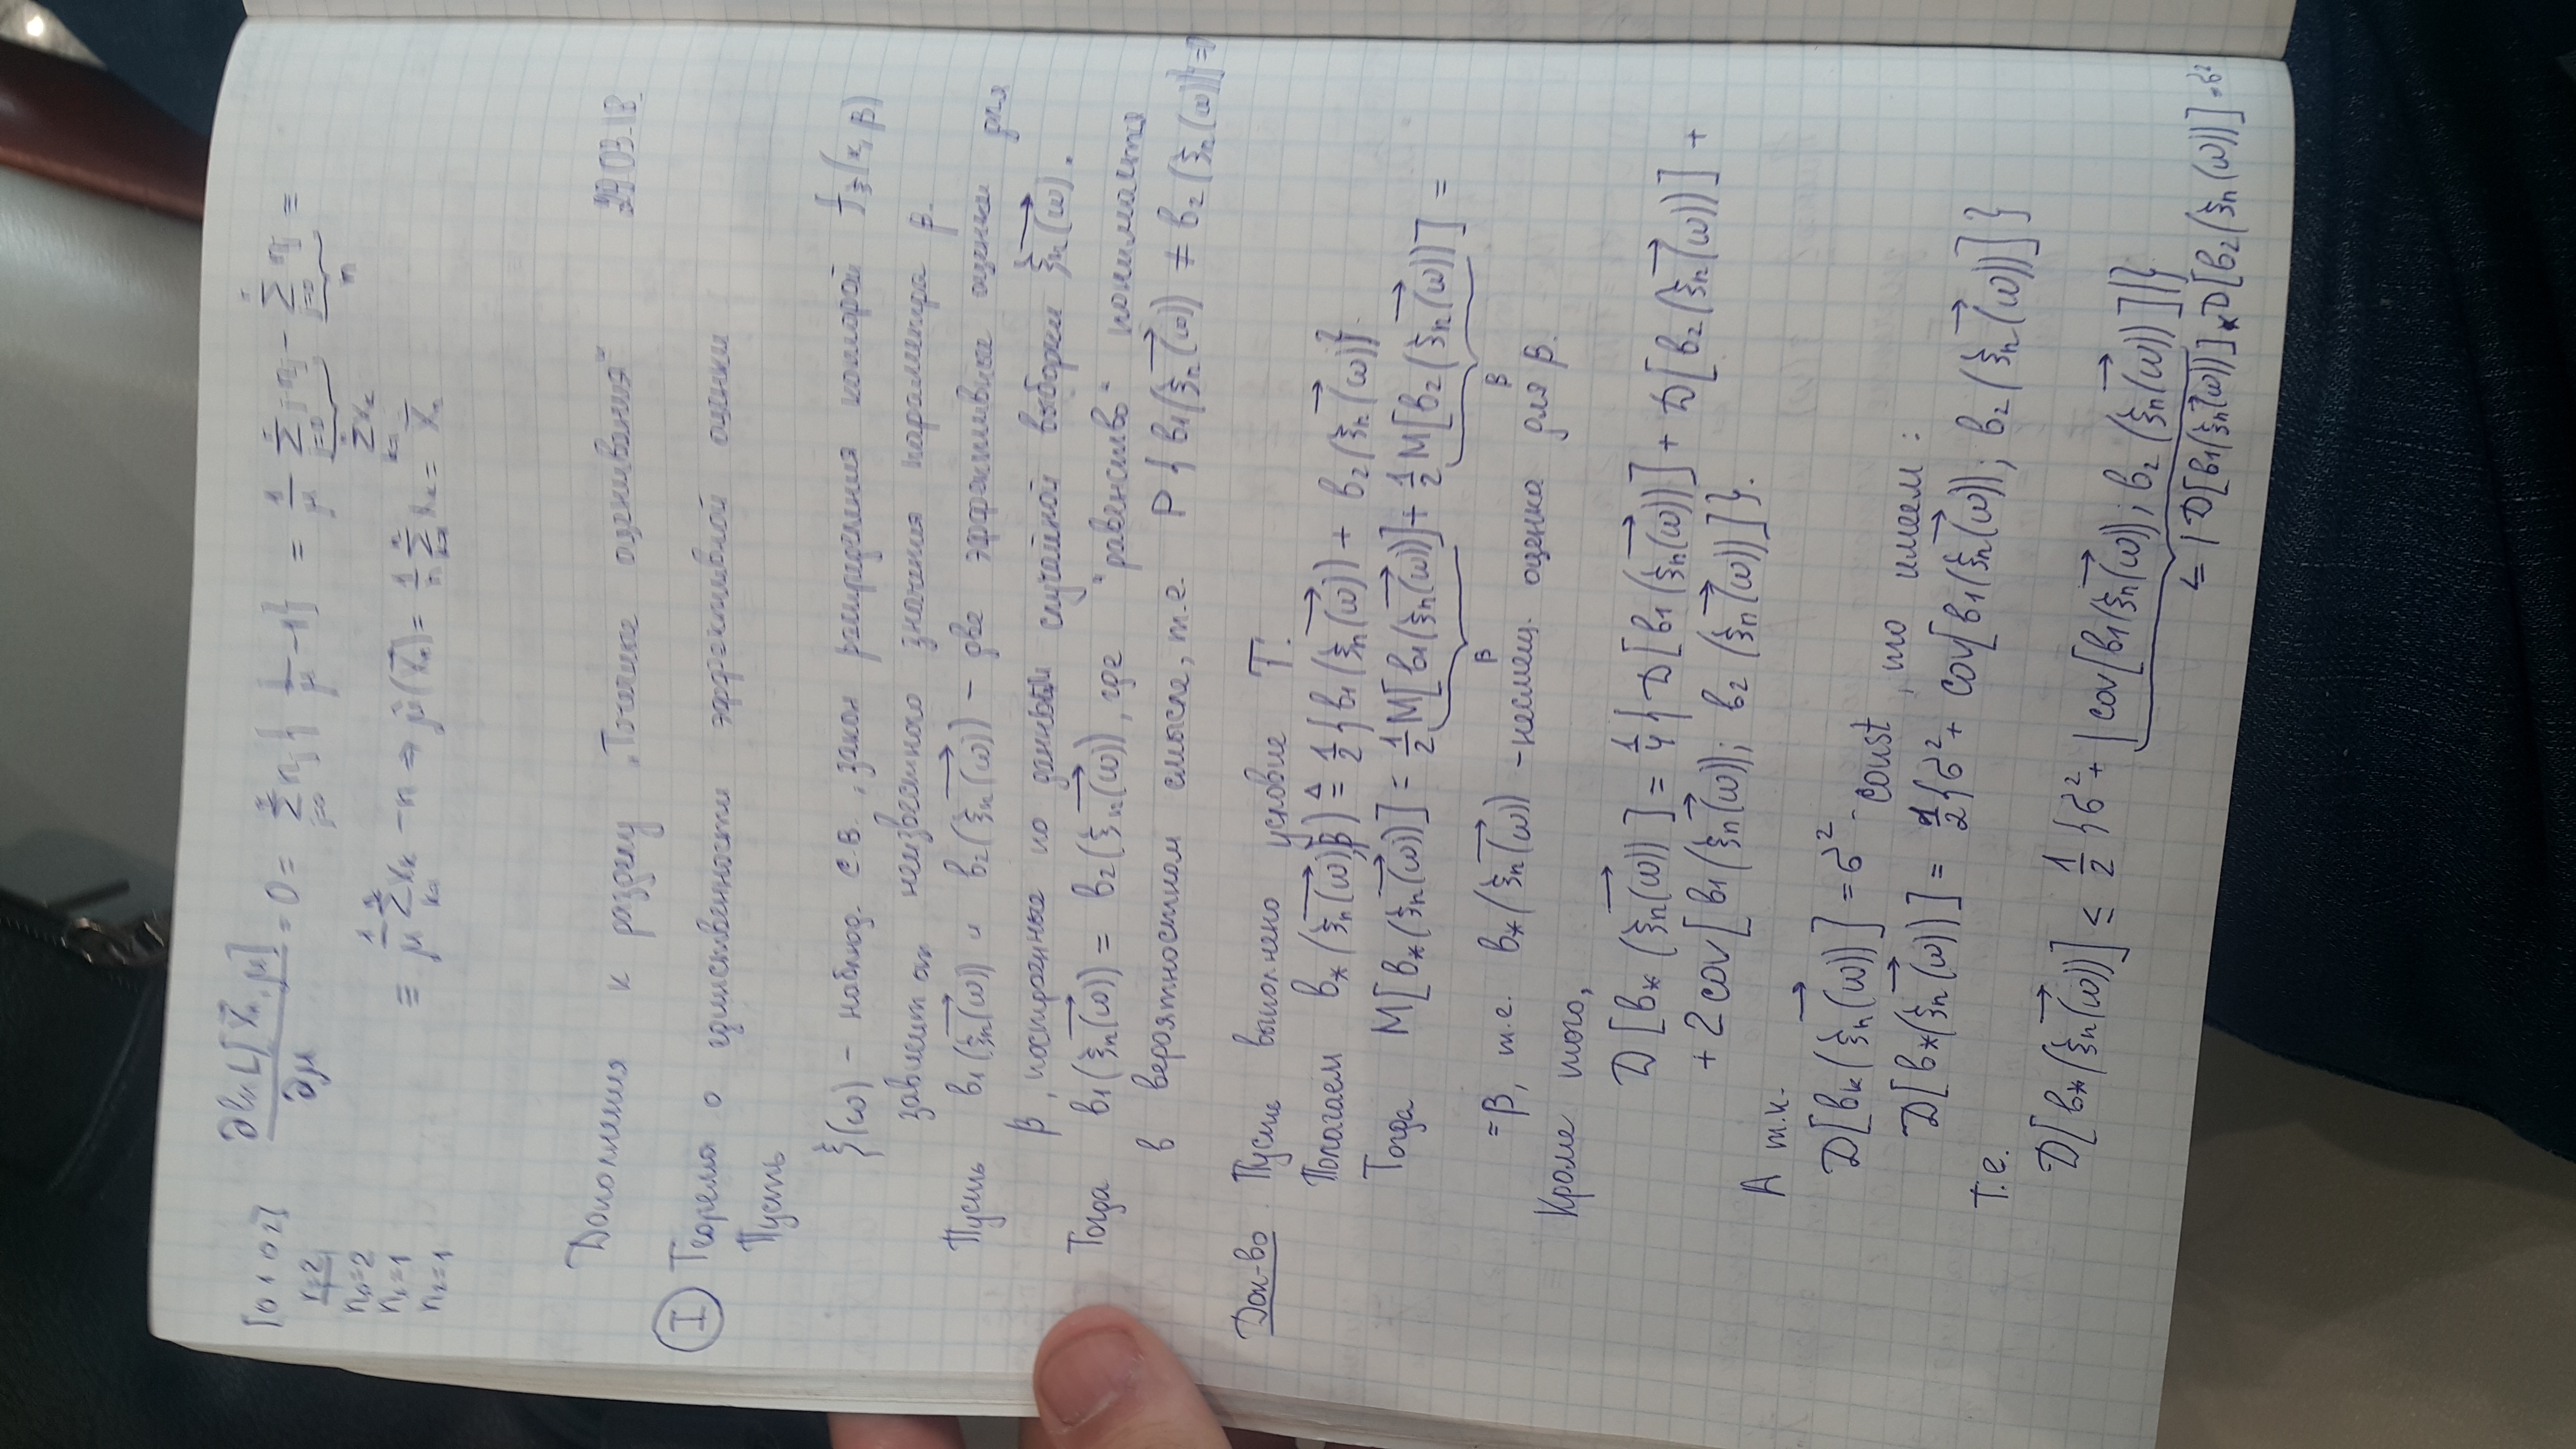 [0 1 0 2] ∂ln L[X⃗n, μ] / ∂μ = 0 = Σ nj { j/μ − 1 } = 1/μ Σ j nj − Σ nj =
r=2
n0=2
n1=1
n2=1
= 1/μ Σ xk − n ⇒ μ̂(X⃗n) = 1/n Σ xk = X̄n
Дополнения к разделу „Точечные оценивания“
Ⓘ Теорема о единственности эффективной оценки
Пусть
ξ(ω) – наблюд. с.в., закон распределения которой fξ(x, β)
зависит от неизвестного значения параметра β.
Пусть b1(ξn(ω)) и b2(ξn(ω)) – две эффективные оценки для
β, построенные по данной случайной выборки ξn(ω).
Тогда b1(ξn(ω)) = b2(ξn(ω)), где "равенство" понимается
в вероятностном смысле, т.е. P{b1(ξn(ω)) ≠ b2(ξn(ω))} = 0
Док-во. Пусть выполнено условие Т.
Полагаем b*(ξn(ω), β) ≜ 1/2 {b1(ξn(ω)) + b2(ξn(ω))}.
Тогда M[b*(ξn(ω))] = 1/2 M[b1(ξn(ω))] + 1/2 M[b2(ξn(ω))] =
β β
= β, т.е. b*(ξn(ω)) – несмещ. оценка для β.
Кроме того,
D[b*(ξn(ω))] = 1/4 {D[b1(ξn(ω))] + D[b2(ξn(ω))] +
+ 2cov[b1(ξn(ω)); b2(ξn(ω))]}.
А т.к.
D[bk(ξn(ω))] = σ² - const, то имеем:
D[b*(ξn(ω))] = 1/2 {σ² + cov[b1(ξn(ω)); b2(ξn(ω))]}
Т.е.
D[b*(ξn(ω))] ≤ 1/2 {σ² + |cov[b1(ξn(ω)); b2(ξn(ω))]|}
≤ √D[b1(ξn(ω))]*D[b2(ξn(ω))] = σ²